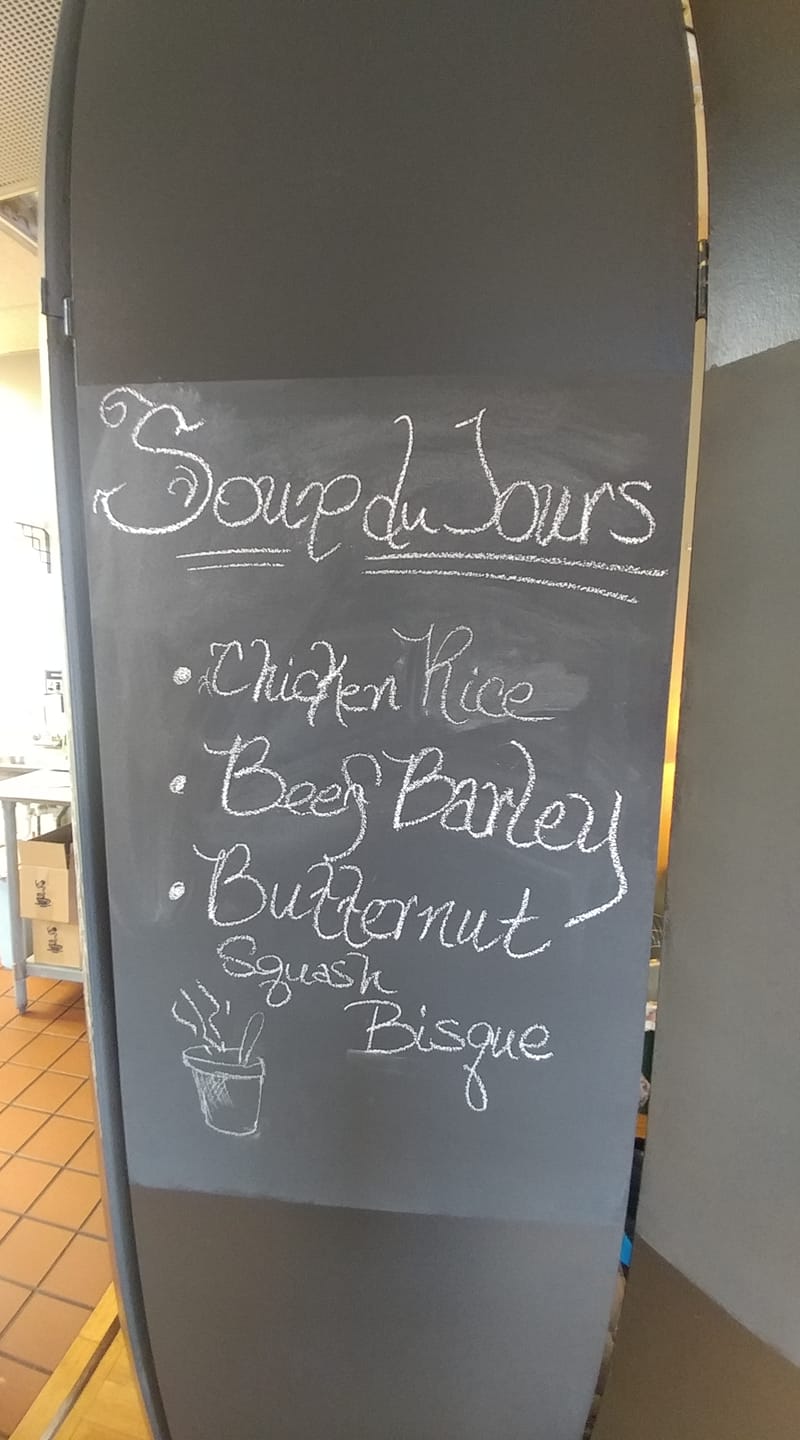 Soup du Jours
• Chicken Rice
• Beef Barley
• Butternut
Squash
Bisque